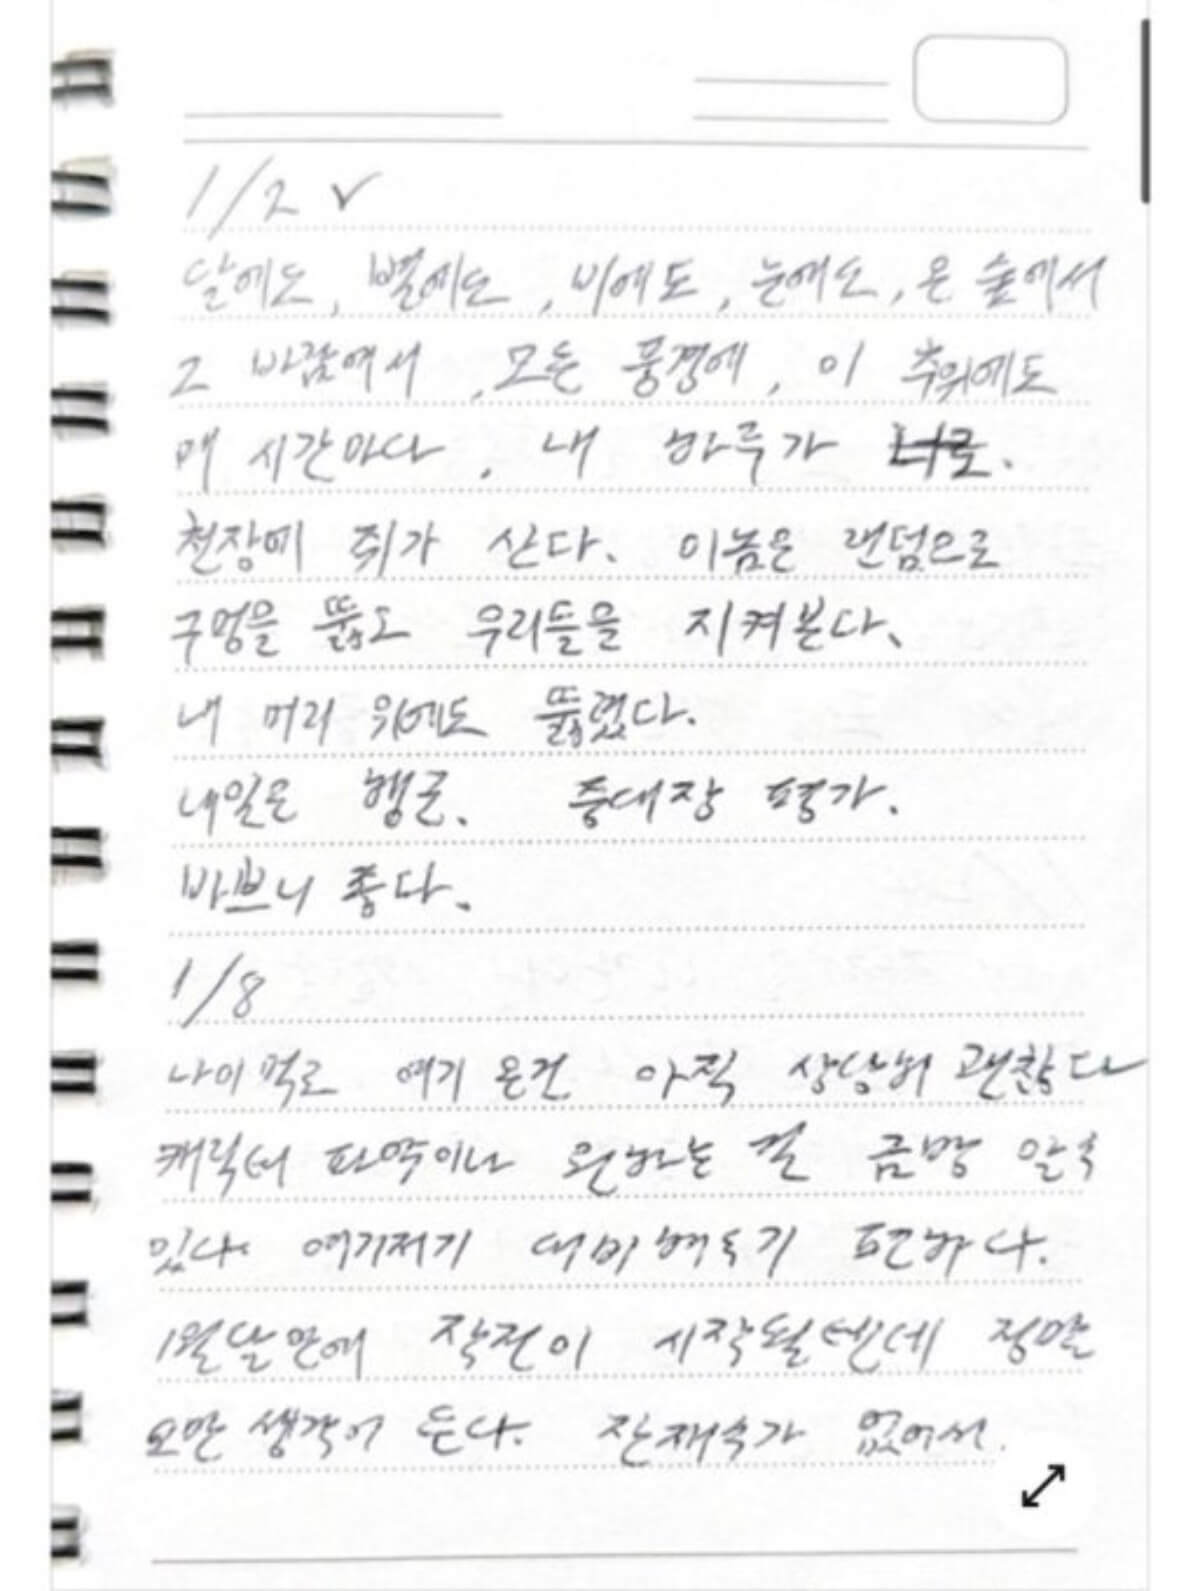 1/2 ✓
달에도, 별에도, 비에도, 눈에도, 온 숲에서
그 바람에서, 모든 풍경에, 이 추위에도
매 시간마다, 내 하루가 너로.
천장에 쥐가 산다. 이놈은 랜덤으로
구멍을 뚫고 우리들을 지켜본다.
내 머리 위에도 뚫렸다.
내일은 행군. 중대장 평가.
바쁘니 좋다.
1/8
나이 먹고 여기 온건 아직 상당히 괜찮다
캐릭터 파악이나 원하는 걸 금방 알 수
있다. 여기저기 대비해두기 편하다.
1월달 안에 작전이 시작될텐데 정말
오만 생각이 든다. 잔재수가 없어서.